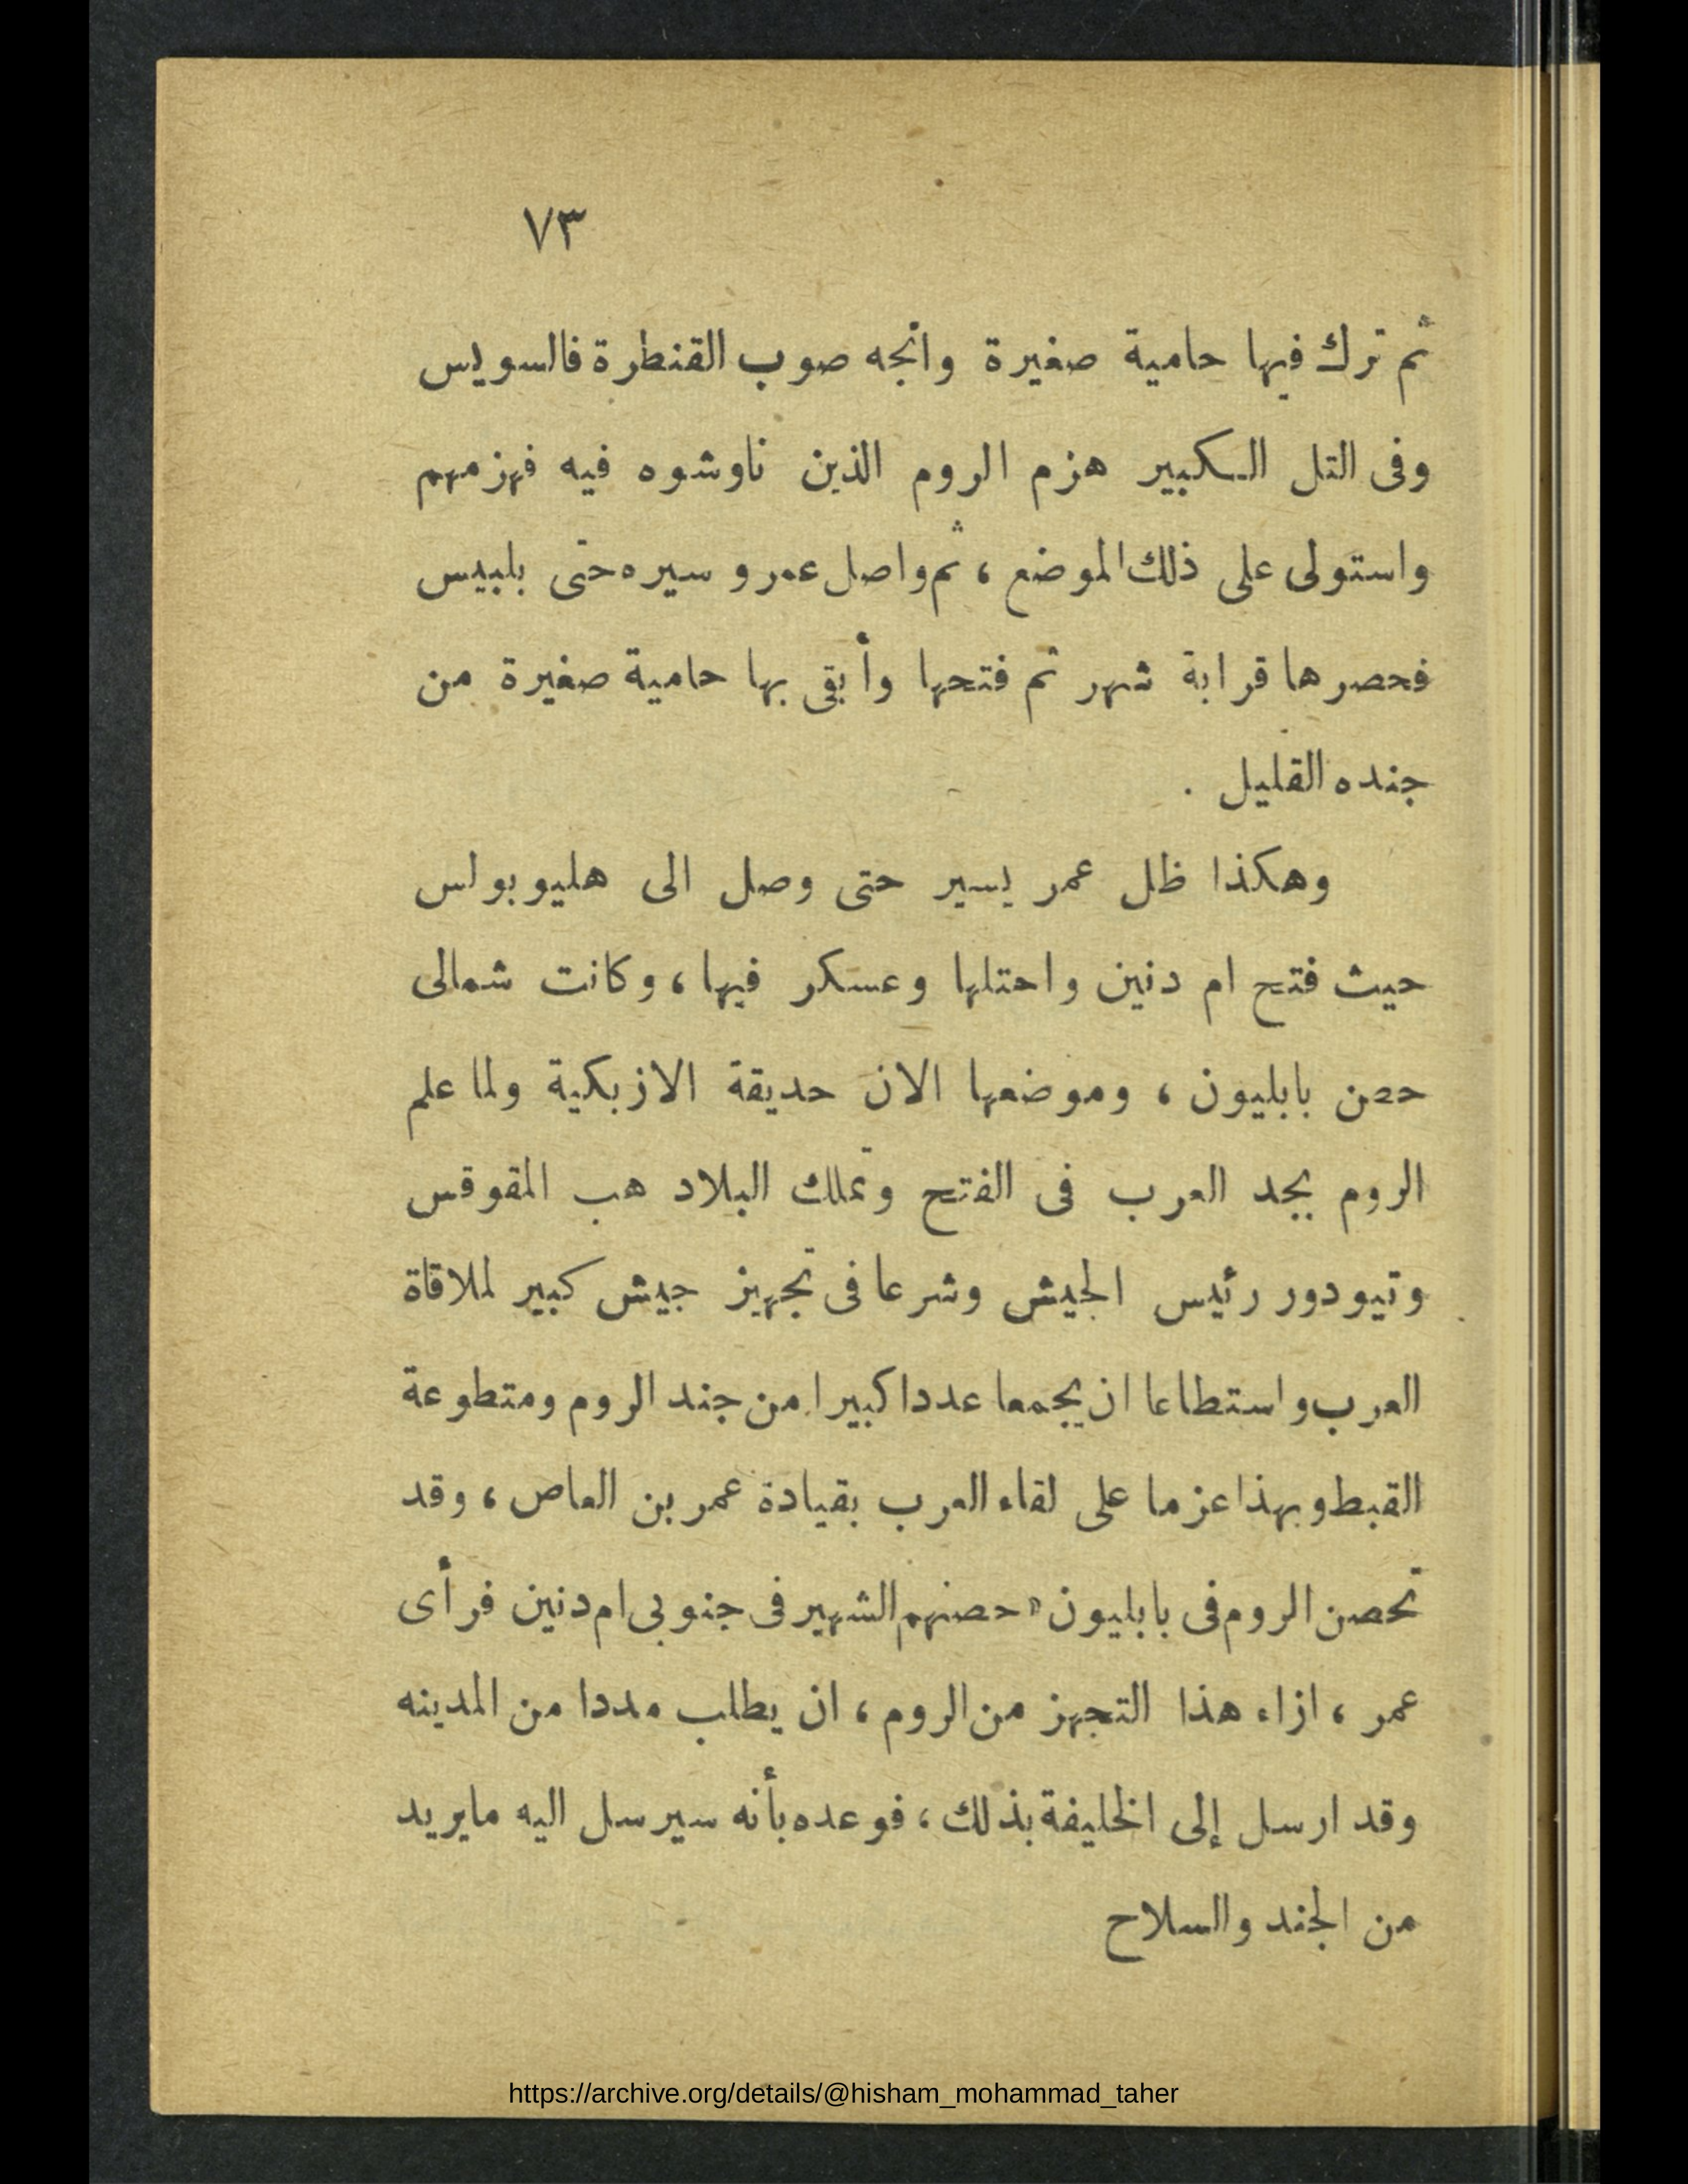 ٧٣
ثم ترك فيها حامية صغيرة واتجه صوب القنطرة فالسويس
وفى التل الـكبير هزم الروم الذين ناوشوه فيه فهزمهم
واستولى على ذلك الموضع ، ثم واصل عمرو سيره حتى بلبيس
فحصرها قرابة شهر ثم فتحها وأبقى بها حامية صغيرة من
جنده القليل .
وهكذا ظل عمر يسير حتى وصل الى هليوبولس
حيث فتح ام دنين واحتلها وعسكر فيها ، وكانت شمالى
حصن بابليون ، وموضعها الان حديقة الازبكية ولما علم
الروم بجد العرب فى الفتح وتملك البلاد هب المقوقس
وتيودور رئيس الجيش وشرعا فى تجهيز جيش كبير لملاقاة
العرب واستطاعا ان يجمعا عددا كبيرا من جند الروم ومتطوعة
القبط وبهذا عزما على لقاء العرب بقيادة عمر بن العاص ، وقد
تحصن الروم فى بابليون « حصنهم الشهير فى جنوبى ام دنين فرأى
عمر ، ازاء هذا التجهز من الروم ، ان يطلب مددا من المدينه
وقد ارسل إلى الخليفة بذلك ، فوعده بأنه سيرسل اليه مايريد
من الجند والسلاح
https://archive.org/details/@hisham_mohammad_taher